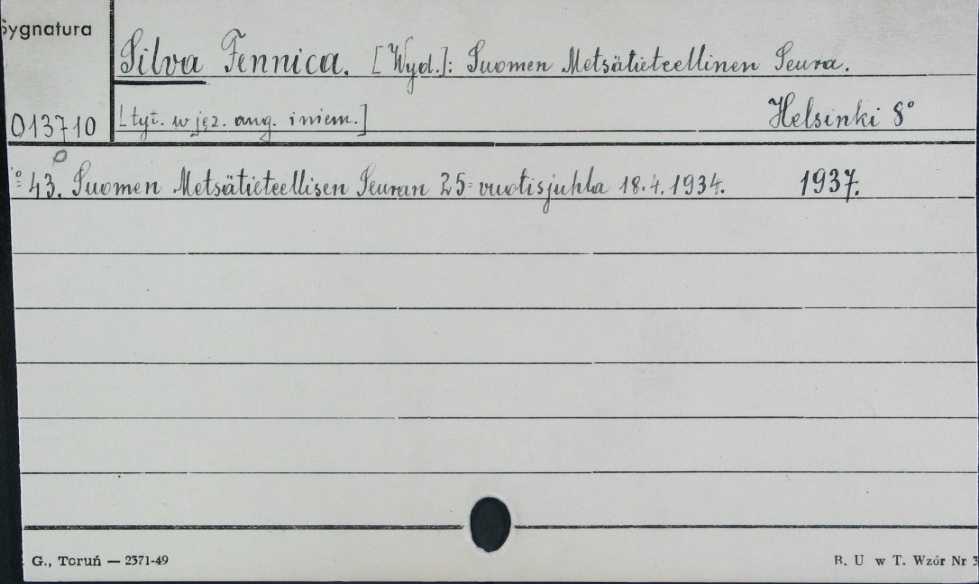 Sygnatura
Silva Fennica. [Wyd.]: Suomen Metsätieteellinen Seura.
013710 [tyt. w jęz. ang. i niem.] Helsinki 8°
43. Suomen Metsätieteellisen Seuran 25-vuotisjuhla 18.4.1934. 1937.
G., Toruń — 2371-49 B. U w T. Wzór Nr